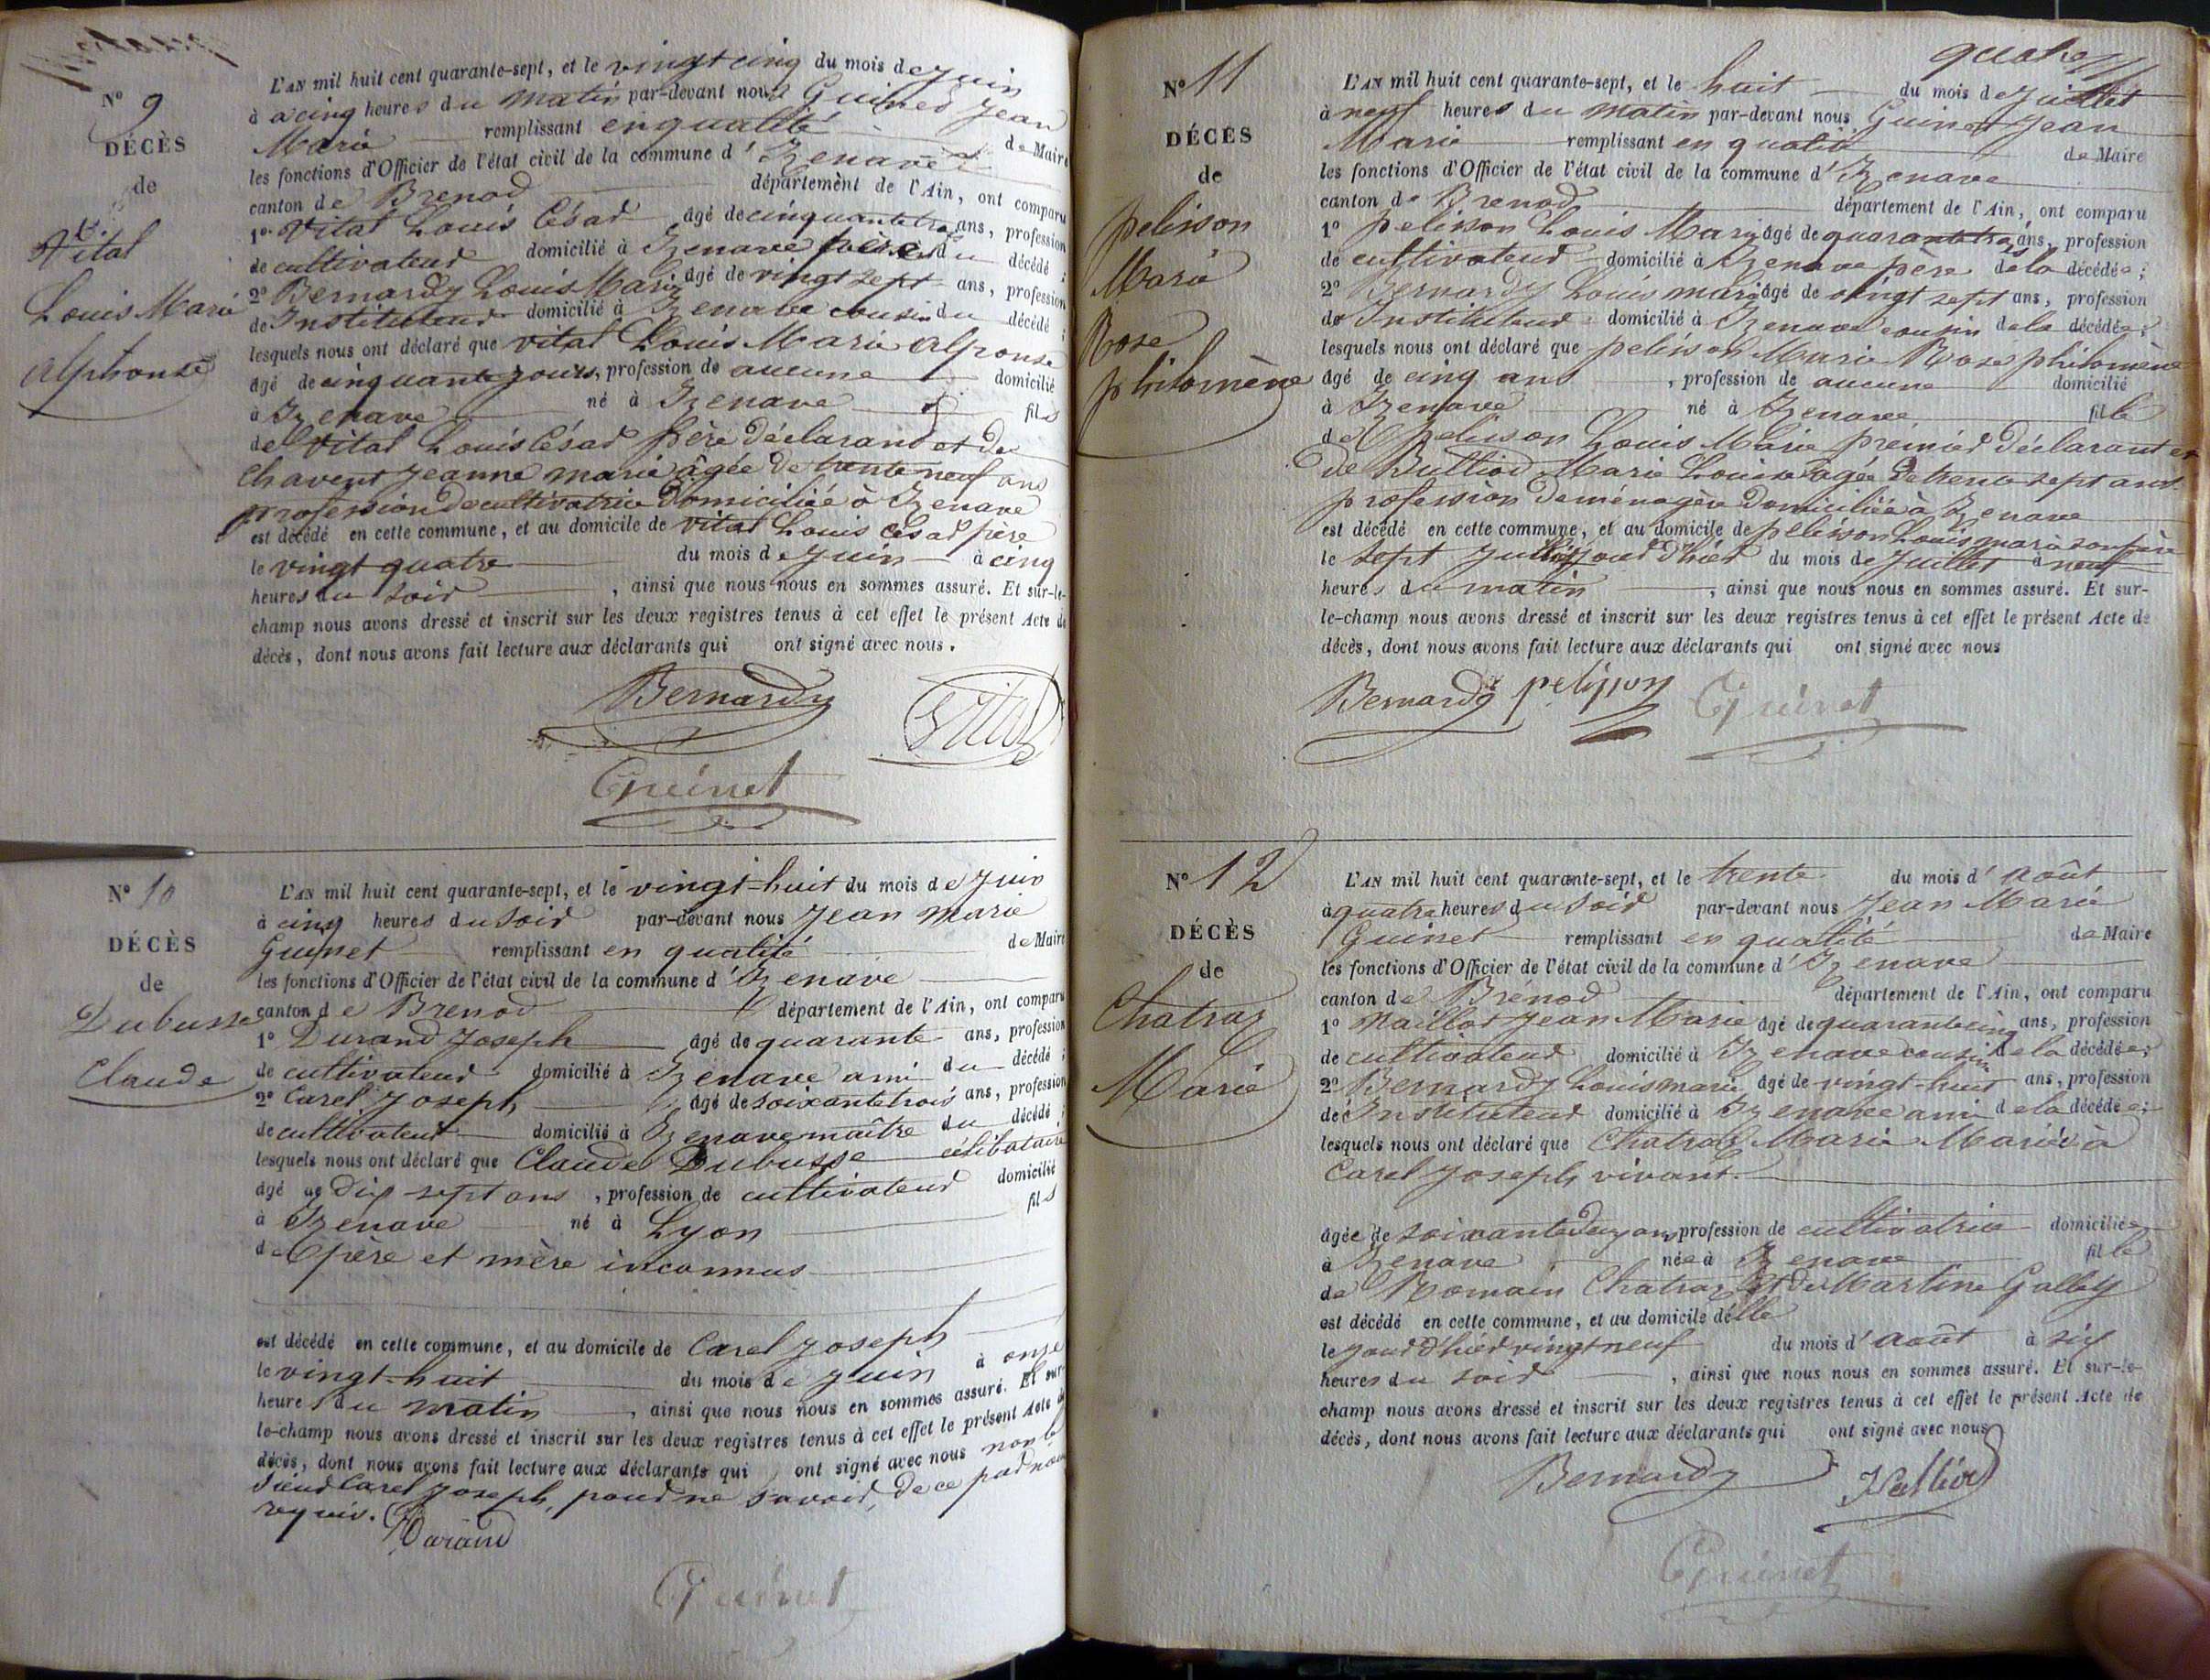 N.º 9
DÉCÈS
de
Vital
Louis Marie
Alphonse
L'AN mil huit cent quarante-sept, et le vingt cinq du mois de juin
à cinq heures du matin par-devant nous Guinet Jean
Marie remplissant en qualité de Maire
les fonctions d'Officier de l'état civil de la commune d'Izenave
canton de Brenod département de l'Ain, ont comparu
1º Vital Louis César âgé de cinquante trois ans, profession
de cultivateur domicilié à Izenave père du décédé ;
2º Bernardy Louis Marie âgé de vingt sept ans, profession
de Instituteur domicilié à Izenave cousin du décédé ;
lesquels nous ont déclaré que vital Louis Marie Alponse
âgé de cinquante jours, profession de aucune domicilié
à Izenave né à Izenave fils
de Vital Louis César père déclarant et de
Chavent Jeanne marie âgée de trente neuf ans
profession de cultivatrice domiciliée à Izenave
est décédé en cette commune, et au domicile de vital Louis César père
le vingt quatre du mois de juin à cinq
heures du soir , ainsi que nous nous en sommes assuré. Et sur-le-
champ nous avons dressé et inscrit sur les deux registres tenus à cet effet le présent Acte de
décès, dont nous avons fait lecture aux déclarants qui ont signé avec nous.
Bernardy Vital
Guinet
N.º 10
DÉCÈS
de
Dubusse
Claude
L'AN mil huit cent quarante-sept, et le vingt-huit du mois de juin
à cinq heures du soir par-devant nous Jean Marie
Guinet remplissant en qualité de Maire
les fonctions d'Officier de l'état civil de la commune d'Izenave
canton de Brenod département de l'Ain, ont comparu
1º Durand Joseph âgé de quarante ans, profession
de cultivateur domicilié à Izenave ami du décédé ;
2º Carel Joseph âgé de soixante trois ans, profession
de cultivateur domicilié à Izenave maître du décédé ;
lesquels nous ont déclaré que Claude Dubusse célibataire
âgé de dix sept ans , profession de cultivateur domicilié
à Izenave né à Lyon fils
de père et mère inconnus
est décédé en cette commune, et au domicile de Carel Joseph
le vingt-huit du mois de juin à onze
heures du matin , ainsi que nous nous en sommes assuré. Et sur-
le-champ nous avons dressé et inscrit sur les deux registres tenus à cet effet le présent Acte de
décès, dont nous avons fait lecture aux déclarants qui ont signé avec nous non le
sieur Carel Joseph, pour ne savoir, de ce par nous
requis. Durand
Guinet
quatre
N.º 11
DÉCÈS
de
pelisson
Marie
Rose
philomène
L'AN mil huit cent quarante-sept, et le huit du mois de Juillet
à neuf heures du matin par-devant nous Guinet Jean
Marie remplissant en qualité de Maire
les fonctions d'Officier de l'état civil de la commune d'Izenave
canton de Brenod département de l'Ain, ont comparu
1º pelisson Louis Marie âgé de quarante trois ans, profession
de cultivateur domicilié à Izenave père de la décédée ;
2º Bernardy Louis marie âgé de vingt sept ans, profession
de Instituteur domicilié à Izenave cousin de la décédée ;
lesquels nous ont déclaré que pelisson Marie Rose philomène
âgé de cinq ans , profession de aucune domicilié
à Izenave né à Izenave fille
de pelisson Louis Marie premier déclarant et
de Bulliod Marie Louise âgée de trente sept ans
profession de menagère domiciliée à Izenave
est décédé en cette commune, et au domicile de pelisson Louis marie son père
le sept juillet jour d'hier du mois de Juillet à neuf
heures du matin , ainsi que nous nous en sommes assuré. Et sur-
le-champ nous avons dressé et inscrit sur les deux registres tenus à cet effet le présent Acte de
décès, dont nous avons fait lecture aux déclarants qui ont signé avec nous
Bernardy pelisson Guinet
N.º 12
DÉCÈS
de
Chatraz
Marie
L'AN mil huit cent quarante-sept, et le trente du mois d'août
à quatre heures du soir par-devant nous Jean Marie
Guinet remplissant en qualité de Maire
les fonctions d'Officier de l'état civil de la commune d'Izenave
canton de Brénod département de l'Ain, ont comparu
1º Maillod Jean Marie âgé de quarante cinq ans, profession
de cultivateur domicilié à Izenave cousin de la décédée ;
2º Bernardy Louis marie âgé de vingt-huit ans, profession
de Instituteur domicilié à Izenave ami de la décédée ;
lesquels nous ont déclaré que Chatraz Marie Mariée à
Carel Joseph vivant.
âgée de soixante deux ans profession de cultivatrice domiciliée
à Izenave née à Izenave fille
de Romain Chatraz et de Martine Galley
est décédé en cette commune, et au domicile d'elle
le jour d'hier vingt neuf du mois d'août à six
heures du soir , ainsi que nous nous en sommes assuré. Et sur-le-
champ nous avons dressé et inscrit sur les deux registres tenus à cet effet le présent Acte de
décès, dont nous avons fait lecture aux déclarants qui ont signé avec nous
Bernardy
Guinet